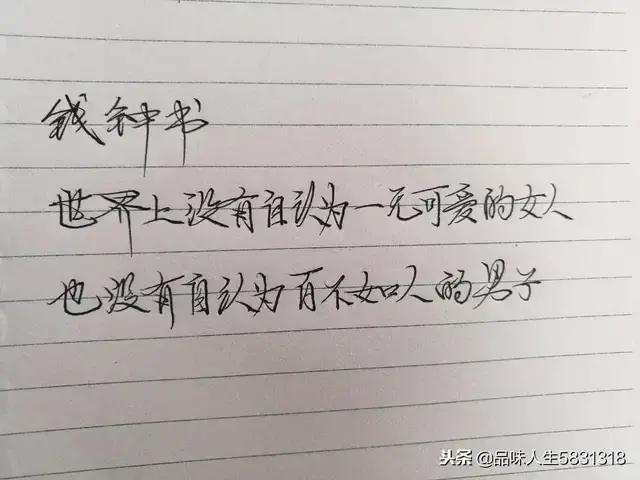 钱钟书
世界上没有自认为一无可爱的女人
也没有自认为百不如人的男子
头条 @品味人生5831318